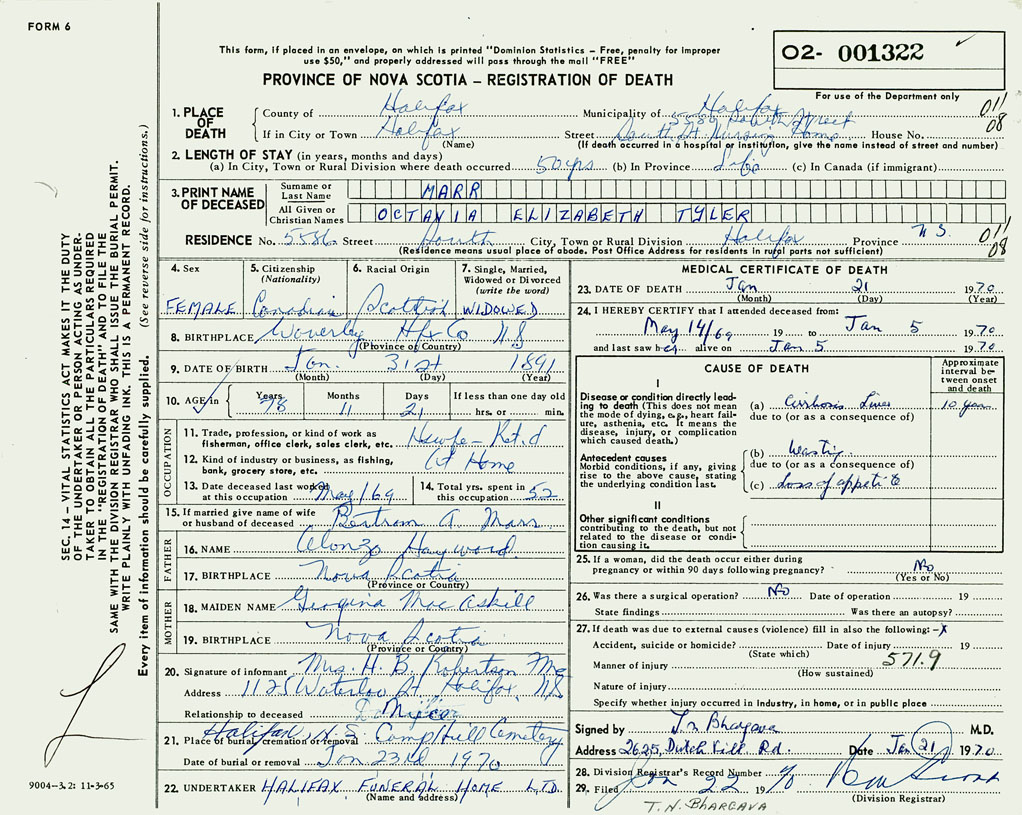 FORM 6
This form, if placed in an envelope, on which is printed "Dominion Statistics – Free, penalty for improper
use $50," and properly addressed will pass through the mail "FREE"
PROVINCE OF NOVA SCOTIA – REGISTRATION OF DEATH
02- 001322
For use of the Department only
011
08
1. PLACE OF DEATH
County of Halifax Municipality of Halifax
5586 South Street
If in City or Town Halifax Street South St. Nursing Home House No.
(Name) (If death occurred in a hospital or institution, give the name instead of street and number)
2. LENGTH OF STAY (in years, months and days)
(a) In City, Town or Rural Division where death occurred 50 yrs (b) In Province Life (c) In Canada (if immigrant)
3. PRINT NAME OF DECEASED
Surname or Last Name MARR
All Given or Christian Names OCTAVIA ELIZABETH TYLER
RESIDENCE No. 5586 Street South City, Town or Rural Division Halifax Province N.S.
011
08
(Residence means usual place of abode. Post Office Address for residents in rural parts not sufficient)
4. Sex
FEMALE
5. Citizenship (Nationality)
Canadian
6. Racial Origin
Scottish
7. Single, Married, Widowed or Divorced (write the word)
WIDOWED
8. BIRTHPLACE Waverley Hfx Co N.S
(Province or Country)
9. DATE OF BIRTH Jan. 31st 1891
(Month) (Day) (Year)
10. AGE in Years 78 Months 11 Days 21 If less than one day old
hrs. or min.
OCCUPATION
11. Trade, profession, or kind of work as
fisherman, office clerk, sales clerk, etc. Hswfe – Ret.d
12. Kind of industry or business, as fishing,
bank, grocery store, etc. At Home
13. Date deceased last worked
at this occupation May 1 69
14. Total yrs. spent in
this occupation 52
15. If married give name of wife
or husband of deceased Bertram A. Marr
FATHER
16. NAME Alonzo Hayward
17. BIRTHPLACE Nova Scotia
(Province or Country)
MOTHER
18. MAIDEN NAME Georgina MacAskill
19. BIRTHPLACE Nova Scotia
(Province or Country)
20. Signature of informant Mrs. H. B. Robertson
Address 1125 Waterloo St. Halifax, NS
Relationship to deceased Niece
21. Place of burial, cremation or removal Halifax N.S. Camp Hill Cemetery
Date of burial or removal Jan 23rd 1970
22. UNDERTAKER HALIFAX FUNERAL HOME LTD.
(Name and address)
MEDICAL CERTIFICATE OF DEATH
23. DATE OF DEATH Jan 21 1970
(Month) (Day) (Year)
24. I HEREBY CERTIFY that I attended deceased from:
May 14/69 19 to Jan 5 1970
and last saw her alive on Jan 5 1970
CAUSE OF DEATH
Approximate interval between onset and death
I
Disease or condition directly leading to death (This does not
mean the mode of dying, e.g., heart failure, asthenia, etc. It means the
disease, injury, or complication
which caused death.)
(a) Cirrhosis Liver 10 years
due to (or as a consequence of)
Antecedent causes
Morbid conditions, if any, giving
rise to the above cause, stating
the underlying condition last.
(b) Wasting
due to (or as a consequence of)
(c) Loss of appetite
II
Other significant conditions
contributing to the death, but not
related to the disease or condition
causing it.
25. If a woman, did the death occur either during
pregnancy or within 90 days following pregnancy? No
(Yes or No)
26. Was there a surgical operation? No Date of operation 19
State findings Was there an autopsy?
27. If death was due to external causes (violence) fill in also the following: –
Accident, suicide or homicide? Date of injury 19
(State which)
571.9
Manner of injury
(How sustained)
Nature of injury
Specify whether injury occurred in industry, in home, or in public place
Signed by T. N. Bhargava M.D.
Address 2625, Dutch Vill Rd. Date Jan 21 1970
28. Division Registrar's Record Number
29. Filed Jan 22 1970
(Division Registrar)
T. N. BHARGAVA
SEC. 14 – VITAL STATISTICS ACT MAKES IT THE DUTY
OF THE UNDERTAKER OR PERSON ACTING AS UNDER-
TAKER TO OBTAIN ALL THE PARTICULARS REQUIRED
IN THE "REGISTRATION OF DEATH" AND TO FILE THE
SAME WITH THE DIVISION REGISTRAR WHO SHALL ISSUE THE BURIAL PERMIT.
WRITE PLAINLY WITH UNFADING INK. THIS IS A PERMANENT RECORD.
Every item of information should be carefully supplied. (See reverse side for instructions.)
9004–3.2: 11-3-65